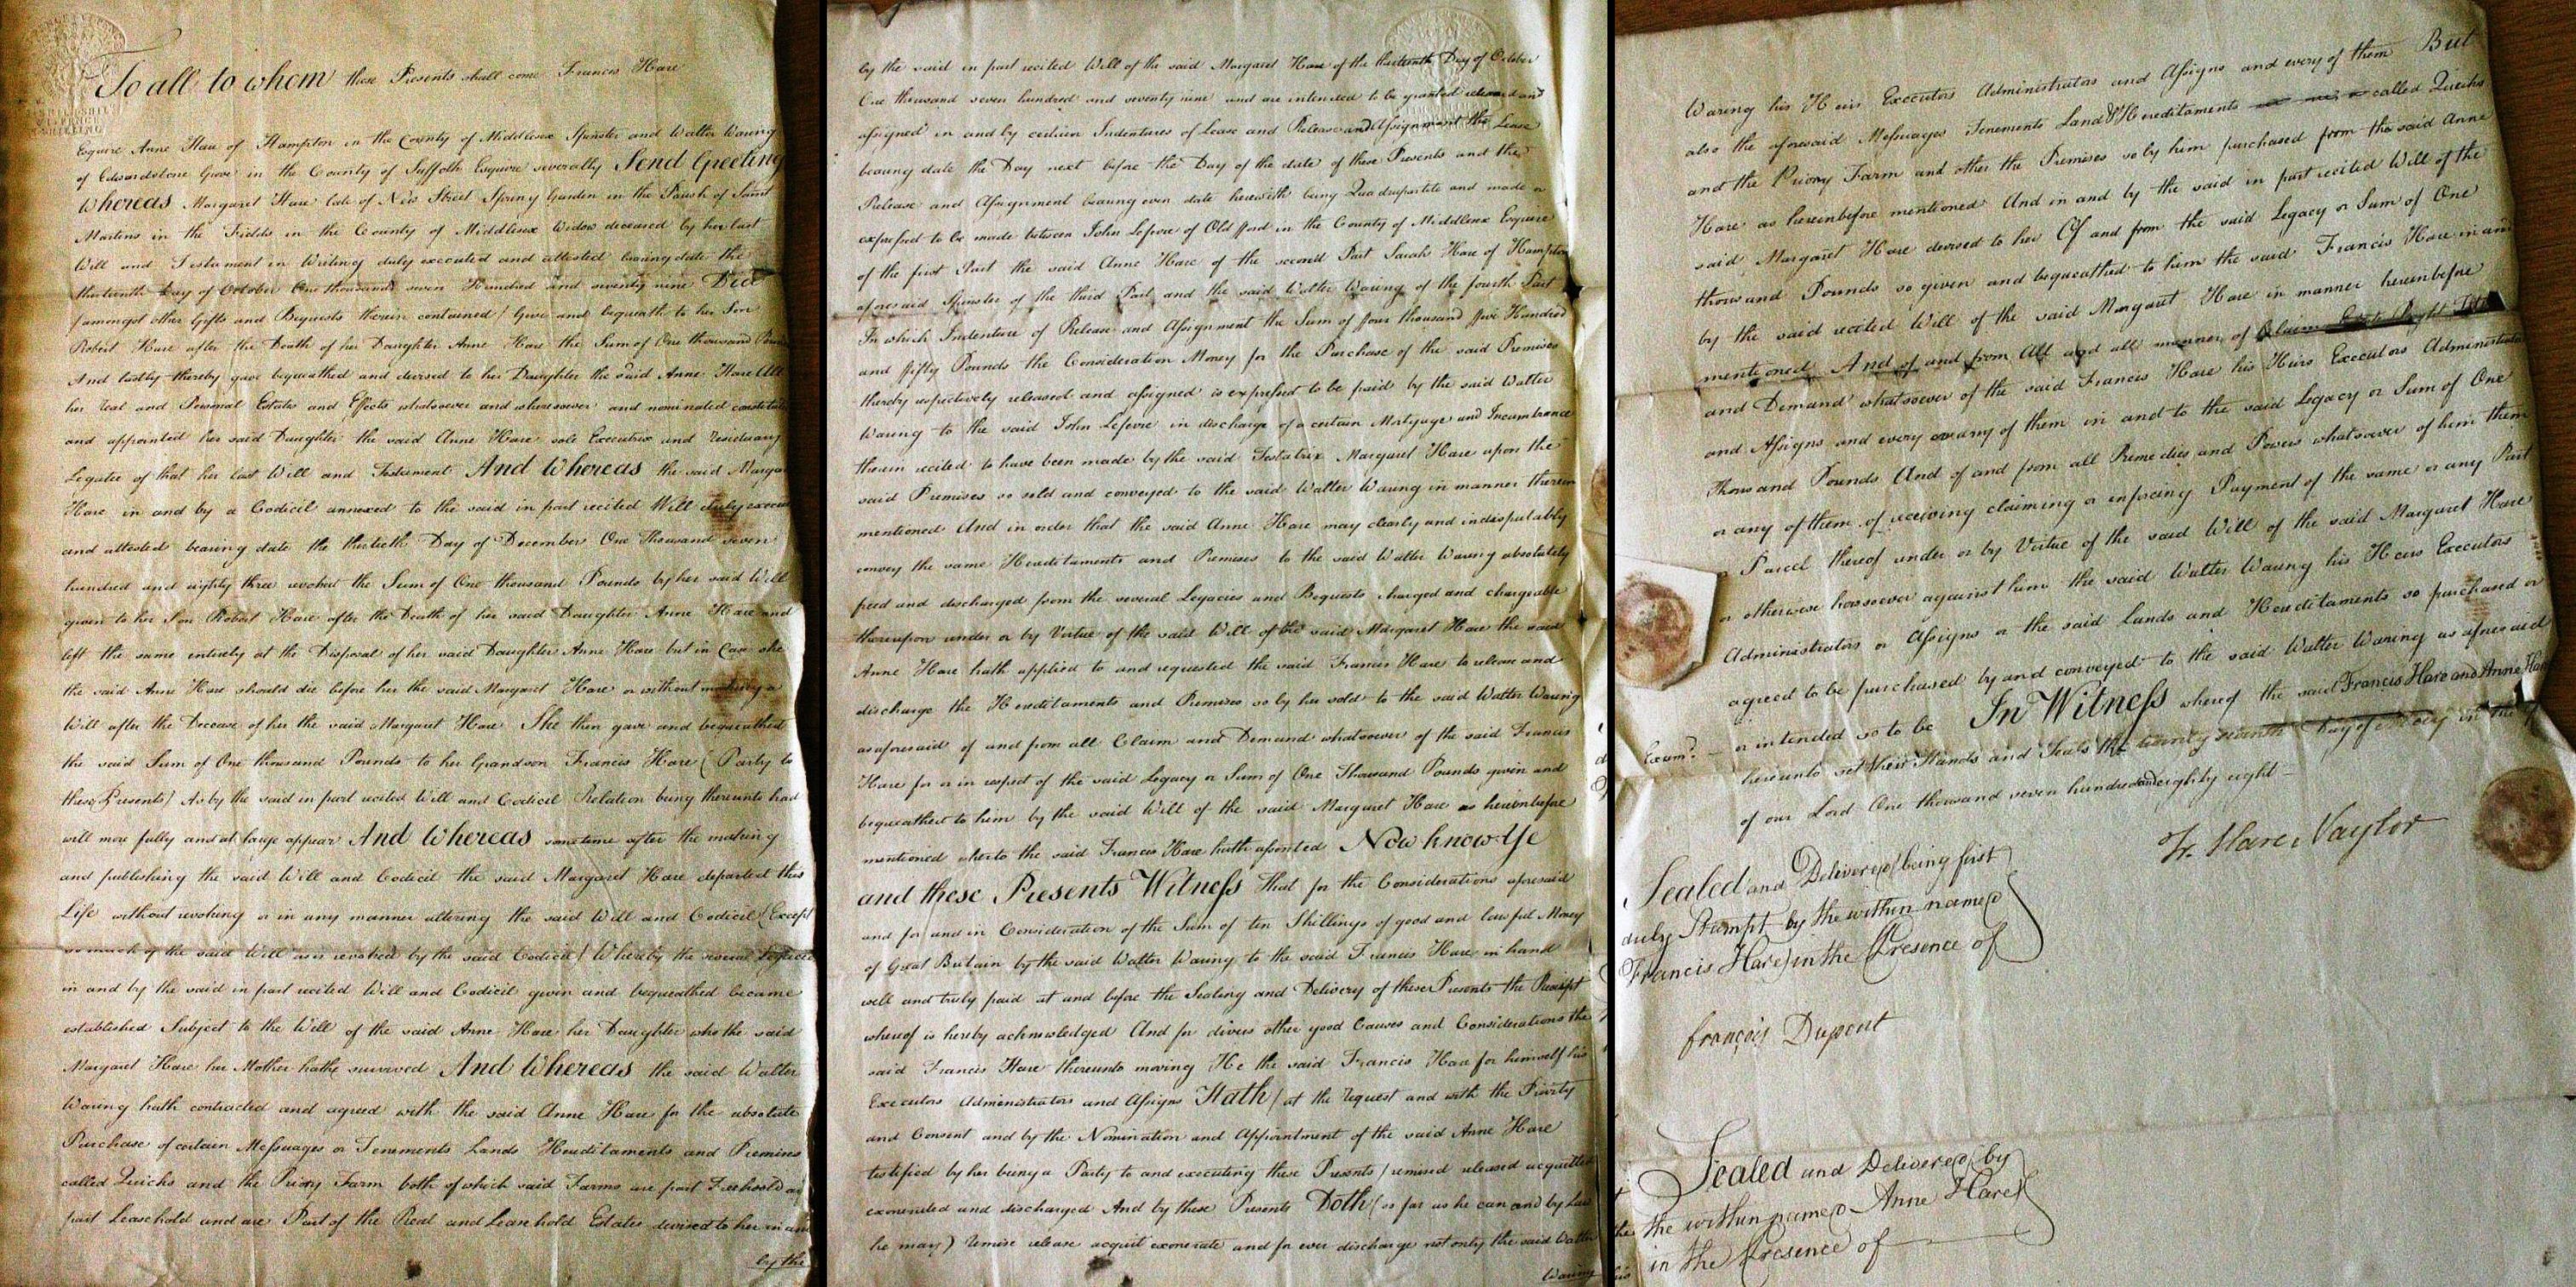 To all to whom these Presents shall come Francis Hare
Esquire Anne Hare of Hampton in the County of Middlesex Spinster and Walter Waring
of Edwardstone Grove in the County of Suffolk Esquire severally Send Greeting
Whereas Margaret Hare late of New Street Spring Garden in the Parish of Saint
Martins in the Fields in the County of Middlesex Widow deceased by her last
Will and Testament in Writing duly executed and attested bearing date the
thirteenth Day of October One thousand seven Hundred and seventy nine Did
(amongst other Gifts and Bequests therein contained) Give and bequeath to her Son
Robert Hare after the Death of her Daughter Anne Hare the Sum of One thousand
And lastly thereby gave bequeathed and devised to her Daughter the said Anne Hare All
her Real and Personal Estates and Effects whatsoever and wheresoever and nominated
and appointed her said Daughter the said Anne Hare sole Executrix and Residuary
Legatee of that her last Will and Testament And Whereas the said
Hare in and by a Codicil annexed to the said in part recited Will duly
and attested bearing date the thirtieth Day of December One Thousand seven
hundred and eighty three revoked the Sum of One thousand Pounds by her said Will
given to her Son Robert Hare after the Death of her said Daughter Anne Hare and
left the same entirely at the Disposal of her said Daughter Anne Hare but in Case she
the said Anne Hare should die before her the said Margaret Hare or without making a
Will after the Decease of her the said Margaret Hare She then gave and bequeathed
the said Sum of One thousand Pounds to her Grandson Francis Hare (Party to
these Presents) As by the said in part recited Will and Codicil Relation being thereunto had
will more fully and at large appear And Whereas sometime after the making
and publishing the said Will and Codicil the said Margaret Hare departed this
Life without revoking or in any manner altering the said Will and Codicil (Except
so much of the said Will as is revoked by the said Codicil) Whereby the several
in and by the said in part recited Will and Codicil given and bequeathed became
established Subject to the Will of the said Anne Hare her Daughter who the said
Margaret Hare her Mother hath survived And Whereas the said Walter
Waring hath contracted and agreed with the said Anne Hare for the absolute
Purchase of certain Messuages or Tenements Lands Hereditaments and Premises
called Quicks and the Priory Farm both of which said Farms are part Freehold
part Leasehold and are Part of the Real and Leasehold Estates devised to her in
by the
by the said in part recited Will of the said Margaret Hare of the thirteenth Day of October
One thousand seven hundred and seventy nine and are intended to be granted released and
assigned in and by certain Indentures of Lease and Release and Assignment the Lease
bearing date the Day next before the Day of the date of these Presents and the
Release and Assignment bearing even date herewith being Quadrupartite and made or
expressed to be made between John Lefevre of Old Ford in the County of Middlesex Esquire
of the first Part the said Anne Hare of the second Part Sarah Hare of Hampton
aforesaid Spinster of the third Part and the said Walter Waring of the fourth Part
In which Indenture of Release and Assignment the Sum of four thousand five Hundred
and fifty Pounds the Consideration Money for the Purchase of the said Premises
thereby respectively released and assigned is expressed to be paid by the said Walter
Waring to the said John Lefevre in discharge of a certain Mortgage and Incumbrance
therein recited to have been made by the said Testatrix Margaret Hare upon the
said Premises so sold and conveyed to the said Walter Waring in manner therein
mentioned And in order that the said Anne Hare may clearly and indisputably
convey the same Hereditaments and Premises to the said Walter Waring absolutely
freed and discharged from the several Legacies and Bequests charged and chargeable
thereupon under or by Virtue of the said Will of the said Margaret Hare the said
Anne Hare hath applied to and requested the said Francis Hare to release and
discharge the Hereditaments and Premises so by her sold to the said Walter Waring
as aforesaid of and from all Claim and Demand whatsoever of the said Francis
Hare for or in respect of the said Legacy or Sum of One Thousand Pounds given and
bequeathed to him by the said Will of the said Margaret Hare as hereinbefore
mentioned whereto the said Francis Hare hath assented Now know Ye
and these Presents Witness That for the Considerations aforesaid
and for and in Consideration of the Sum of ten Shillings of good and lawful Money
of Great Britain by the said Walter Waring to the said Francis Hare in hand
well and truly paid at and before the Sealing and Delivery of these Presents the Receipt
whereof is hereby acknowledged And for divers other good Causes and Considerations the
said Francis Hare thereunto moving He the said Francis Hare for himself his
Executors Administrators and Assigns Hath (at the request and with the Privity
and Consent and by the Nomination and Appointment of the said Anne Hare
testified by her being a Party to and executing these Presents) remised released acquitted
exonerated and discharged And by these Presents Doth (as far as he can and by Law
he may) remise release acquit exonerate and for ever discharge not only the said Walter
Waring
Waring his Heirs Executors Administrators and Assigns and every of them But
also the aforesaid Messuages Tenements Land & Hereditaments called Quicks
and the Priory Farm and other the Premises so by him purchased from the said Anne
Hare as hereinbefore mentioned And in and by the said in part recited Will of the
said Margaret Hare devised to her Of and from the said Legacy or Sum of One
thousand Pounds so given and bequeathed to him the said Francis Hare in and
by the said recited Will of the said Margaret Hare in manner hereinbefore
mentioned And of and from All and all manner of Claim Right
and Demand whatsoever of the said Francis Hare his Heirs Executors Administrators
and Assigns and every or any of them in and to the said Legacy or Sum of One
Thousand Pounds And of and from all Remedies and Powers whatsoever of him them
or any of them of receiving claiming or enforcing Payment of the same or any Part
or Parcel thereof under or by Virtue of the said Will of the said Margaret Hare
or otherwise howsoever against him the said Walter Waring his Heirs Executors
Administrators or Assigns or the said Lands and Hereditaments so purchased or
agreed to be purchased by and conveyed to the said Walter Waring as aforesaid
or intended so to be In Witness whereof the said Francis Hare and Anne Hare
Exam.d
hereunto set their Hands and Seals the twenty seventh Day of in the
of our Lord One thousand seven hundred and eighty eight
Fr. Hare Naylor
Sealed and Delivered (being first
duly Stampt by the within named
Francis Hare) in the Presence of
françois Dupont
Sealed and Delivered by
the within named Anne Hare
in the Presence of